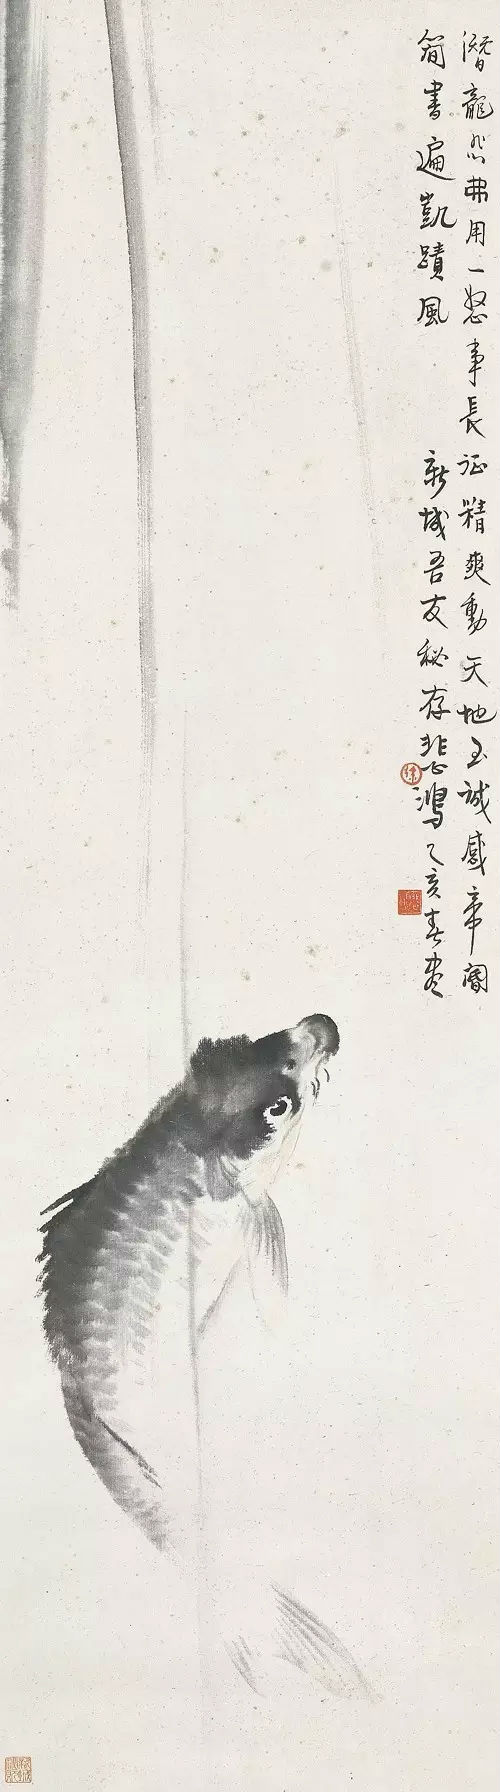 潛龍忿弗用一怒事長征精爽動天地至誠感帝閽
簡書遍凱蹟風
新城吾友秘存悲鴻乙亥春盡